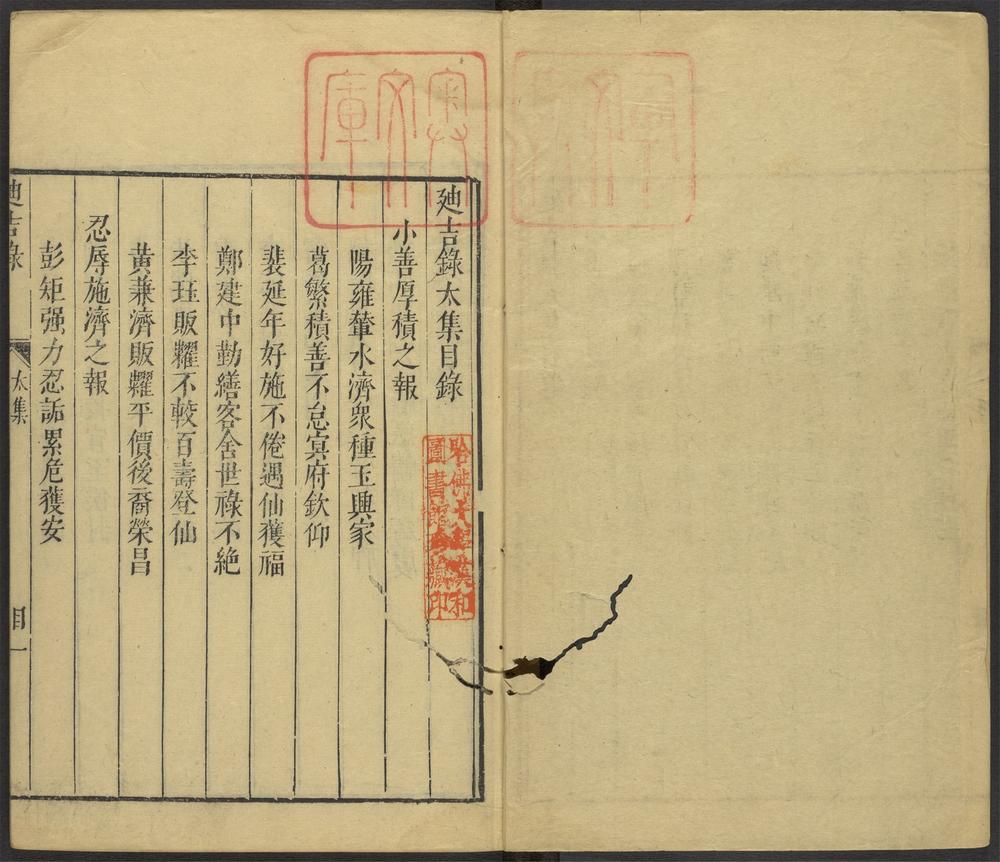 奐文庫
廸吉錄太集目錄
哈佛大學漢和
圖書館珍藏印
小善厚積之報
陽雍輦水濟眾種玉興家
葛繁積善不怠冥府欽仰
裴延年好施不倦遇仙獲福
鄭建中勤繕客舍世祿不絕
李珏販糴不較百壽登仙
黃兼濟販糶平價後裔榮昌
忍辱施濟之報
彭矩强力忍詬累危獲安
廸吉錄
太集
目一